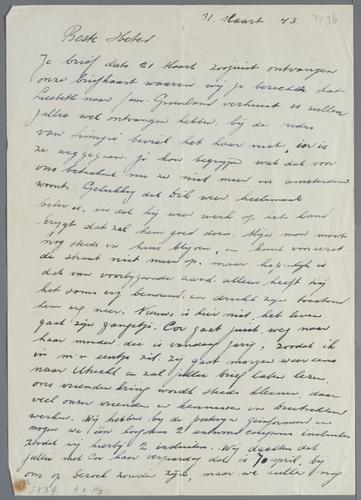 31 Maart 43
Beste Peter
Je brief dato 21 Maart zoojuist ontvangen
onze briefkaart waarin wij je berichtte dat
Liesbeth naar fam. verhuist is zullen
jullie wel ontvangen hebben. bij de
van beviel het haar niet, is
ze weggegaan. Je kan begrijpen wat dat voor
ons beteekent nu ze niet meer in amsterdam
woont. Gelukkig dat Dik weer heelemaal
beter is, en dat hij weer werk op het land
krijgt dat zal hem goed doen. Mijn man moet
nog steeds in huis blijven, en komt vooreerst
de straat niet meer op. maar hopenlijk is
dat van voorbijgaande aard. alleen heeft hij
het soms erg benauwd en drukt zijn toestand
hem erg neer. Nieuws is hier niet, het leven
gaat zijn gangetje. Cor gaat juist weg naar
haar moeder die is vandaag jarig, zoodat ik
in m'n eentje zit. zij gaat morgen weer eens
naar Utrecht en zal jullie brief laten lezen.
ons vrienden kring wordt steeds kleiner, daar
veel onze vrienden en kennissen in Duitschland
werken. Wij hebben bij de geinformeerd en
mogen we één hoogstens 2 antwoord coupons insluiten
zoodat wij hierbij 2 insluiten. Wij dachten dat
jullie met Cor haar verjaardag dat is 10 april, bij
ons op bezoek zouden zijn, maar we zullen nog